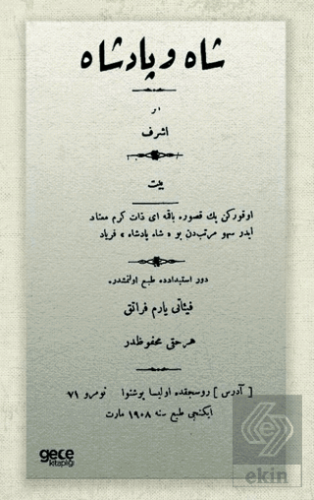 شاه و پادشاه
اثر
اشرف
بیت
اوقورکن پك قصوره باقمه ای ذات کرم معتاد
ایدر سهو مرتب‌دن بو « شاه پادشاه » فریاد
دور استبدادده طبع اولنمشدر
فیئاتی یارم فرانق
هر حقی محفوظدر
[ آدرس ] روسجقده اولیسا پوشنوا نومرو ٧١
ایکنجی طبع سنه ١٩٠٨ مارت
gece
kitaplığı
ekin